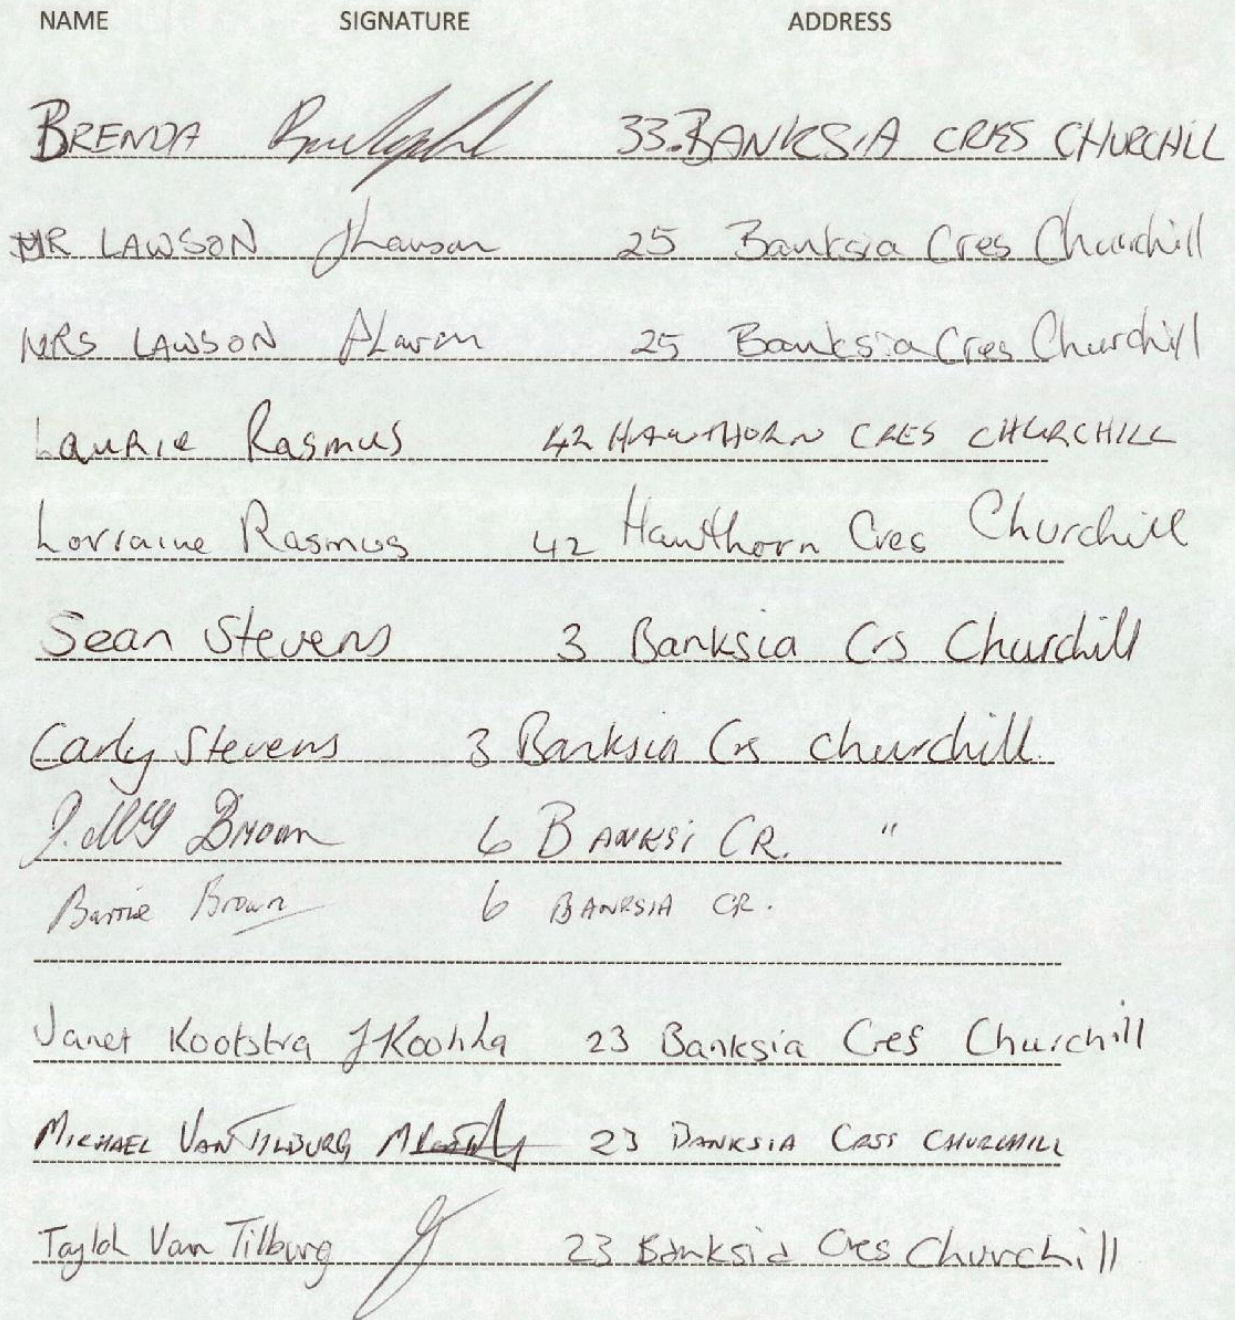 NAME SIGNATURE ADDRESS
BRENDA 33. BANKSIA CRES CHURCHILL
MR LAWSON JLawson 25 Banksia Cres Churchill
MRS LAWSON ALawson 25 Banksia Cres Churchill
Laurie Rasmus 42 HAWTHORN CRES CHURCHILL
Lorraine Rasmus 42 Hawthorn Cres Churchill
Sean Stevens 3 Banksia Crs Churchill
Carly Stevens 3 Banksia Crs churchill.
Brown 6 BANKSI CR. "
Barrie Brown 6 BANKSIA CR.
Janet Kootstra JKootstra 23 Banksia Cres Churchill
MICHAEL VAN TILBURG 23 BANKSIA CRES CHURCHILL
Taylah Van Tilburg 23 Banksia Cres Churchill